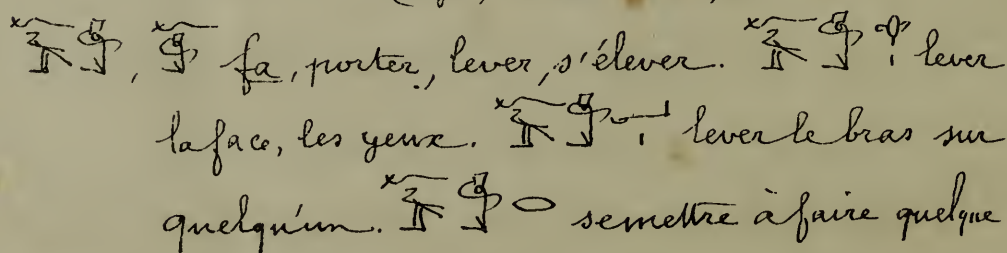 𓆑𓄿𓀏, 𓀏 fa, porter, lever, s'élever. 𓆑𓄿𓀏𓁷𓏤 lever
la face, les yeux. 𓆑𓄿𓀏𓂝𓏤 lever le bras sur
quelqu'un. 𓆑𓄿𓀏𓂋 se mettre à faire quelque